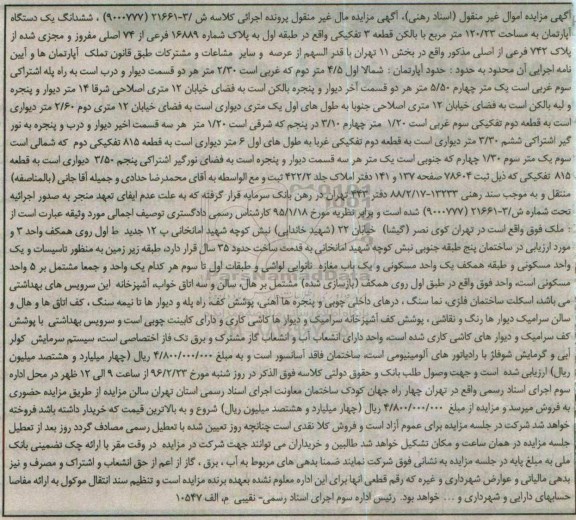 آگهی مزایده اموال غیر منقول (اسناد رهنی)، آگهی مزایده مال غیر منقول پرونده اجرائی کلاسه ش /۳-۲۱۶۶۱ (۹۰۰۰۷۷۷) ، ششدانگ یک دستگاه
آپارتمان به مساحت ۱۲۰/۲۳ متر مربع با بالکن قطعه ۳ تفکیکی واقع در طبقه اول به پلاک شماره ۱۶۸۸۹ فرعی از ۷۴ اصلی مفروز و مجزی شده از
پلاک ۷۴۲ فرعی از اصلی مذکور واقع در بخش ۱۱ تهران با قدر السهم از عرصه و سایر مشاعات و مشترکات طبق قانون تملک آپارتمان ها و آیین
نامه اجرایی آن محدود به حدود : حدود آپارتمان : شمالا اول ۴/۵ متر دوم که غربی است ۲/۳۰ متر هر دو قسمت دیوار و درب است به راه پله اشتراکی
سوم غربی است یک متر چهارم ۵/۵۰ متر هر دو قسمت آخر دیوار و پنجره بالکن است به فضای خیابان ۱۲ متری اصلاحی شرقا ۱۴ متر دیوار و پنجره
و لبه بالکن است به فضای خیابان ۱۲ متری اصلاحی جنوبا به طول های اول یک متری دیواری است به فضای خیابان ۱۲ متری دوم ۲/۶۰ متر دیواری
است به قطعه دوم تفکیکی سوم غربی است ۱/۲۰ متر چهارم ۳/۱۰ در پنجم که شرقی است ۱/۲۰ متر هر سه قسمت اخیر دیوار و درب و پنجره به نور
گیر اشتراکی ششم ۳/۳۰ متر دیواری است به قطعه دوم تفکیکی غربا به طول های اول ۶ متر دیواری است به قطعه ۸۱۵ تفکیکی دوم که شمالی است
سوم یک متر سوم ۱/۳۰ چهارم که جنوبی است یک متر هر سه قسمت دیوار و پنجره است به فضای نورگیر اشتراکی پنجم ۳/۵۰ دیواری است به قطعه
۸۱۵ تفکیکی که ذیل ثبت ۷۸۶۰۴ صفحه ۱۳۷ و ۱۴۱ دفتر املاک جلد ۴۲۲/۲ ثبت و مع الواسطه به آقای محمدرضا حدادی و جمیله آقا جانی (بالمناصفه)
منتقل و به موجب سند رهنی ۱۳۲۳۳-۸۸/۲/۱۷ دفتر تهران در رهن بانک سرمایه قرار گرفته که به علت عدم ایفای تعهد منجر به صدور اجرائیه
تحت شماره ش/۳-۲۱۶۶۱ (۹۰۰۰۷۷۷) شده است و برابر نظریه مورخ ۹۵/۱/۱۸ کارشناس رسمی دادگستری توصیف اجمالی مورد وثیقه عبارت است از
: ملک فوق واقع است در تهران کوی نصر (گیشا) خیابان ۲۲ (شهید خاندایی) نبش کوچه شهید امانخانی پ ۱۲ جدید ط اول روی همکف واحد ۳ و
مورد ارزیابی در ساختمان پنج طبقه جنوبی نبش کوچه شهید امانخانی به قدمت ساخت حدود ۳۵ سال قرار دارد، طبقه زیر زمین به منظور تاسیسات و یک
واحد مسکونی و طبقه همکف یک واحد مسکونی و یک باب مغازه نانوایی لواشی و طبقات اول تا سوم هر کدام یک واحد و جمعا مشتمل بر ۵ واحد
مسکونی است، واحد فوق واقع در طبق اول روی همکف (بازسازی شده) مشتمل بر هال، سالن و سه اتاق خواب، آشپزخانه این سرویس های بهداشتی
می باشد، اسکلت ساختمان فلزی، نما سنگ ، درهای داخلی چوبی و پنجره ها آهنی، پوشش کف راه پله و دیوار ها تا نیمه سنگ ، کف اتاق ها و هال و
سالن سرامیک دیوار ها رنگ و نقاشی ، پوشش کف آشپزخانه سرامیک و دیوار ها کاشی کاری و دارای کابینت چوبی است و سرویس بهداشتی با پوشش
کف سرامیک و دیوار های کاشی کاری شده است، واحد دارای انشعاب آب و انشعاب گاز مشترک و برق تک فاز اختصاصی است، سیستم سرمایش کولر
آبی و گرمایش شوفاژ با رادیاتور های آلومینیومی است، ساختمان فاقد آسانسور است و به مبلغ ۴/۸۰۰/۰۰۰/۰۰۰ ریال (چهار میلیارد و هشتصد میلیون
ریال) ارزیابی شده است و جهت وصول طلب بانک و حقوق دولتی کلاسه فوق الذکر در روز شنبه مورخ ۹۶/۲/۲۳ از ساعت ۹ الی ۱۲ ظهر در محل اداره
سوم اجرای اسناد رسمی واقع در تهران چهار راه جهان کودک ساختمان معاونت اجرای اسناد رسمی استان تهران سالن مزایده از طریق مزایده حضوری
به فروش میرسد و مزایده از مبلغ ۴/۸۰۰/۰۰۰/۰۰۰ ریال (چهار میلیارد و هشتصد میلیون ریال) شروع و به بالاترین قیمت که خریدار داشته باشد فروخته
خواهد شد شرکت در جلسه مزایده برای عموم آزاد است و فروش کلا نقدی است چنانچه روز تعیین شده با تعطیل رسمی مصادف گردد روز بعد از تعطیل
جلسه مزایده در همان ساعت و مکان تشکیل خواهد شد طالبین و خریداران می توانند جهت شرکت در مزایده در وقت مقرر با ارائه چک تضمینی بانک
ملی به مبلغ پایه در جلسه مزایده به نشانی فوق شرکت نمایند ضمنا بدهی های مربوطه به آب ، برق ، گاز از اعم از حق انشعاب و اشتراک و مصرف و نیز
بدهی مالیاتی و عوارض شهرداری و غیره که رقم قطعی آنها برای این اداره معلوم نشده بعهده برنده مزایده است و تنظیم سند انتقال موکول به ارائه مفاصا
حسابهای دارایی و شهرداری و ... خواهد بود. رئیس اداره سوم اجرای اسناد رسمی- نقیبی م، الف ۱۰۵۴۷